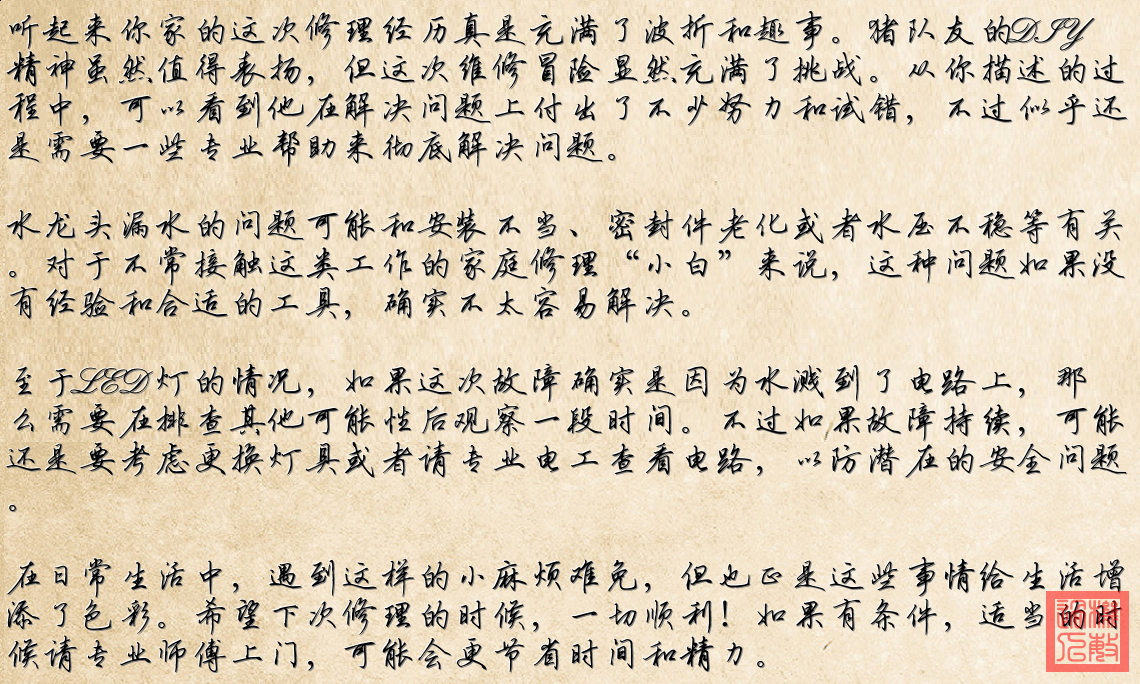 听起来你家的这次修理经历真是充满了波折和趣事。猪队友的DIY
精神虽然值得表扬，但这次维修冒险显然充满了挑战。从你描述的过
程中，可以看到他在解决问题上付出了不少努力和试错，不过似乎还
是需要一些专业帮助来彻底解决问题。
水龙头漏水的问题可能和安装不当、密封件老化或者水压不稳等有关
。对于不常接触这类工作的家庭修理“小白”来说，这种问题如果没
有经验和合适的工具，确实不太容易解决。
至于LED灯的情况，如果这次故障确实是因为水溅到了电路上，那
么需要在排查其他可能性后观察一段时间。不过如果故障持续，可能
还是要考虑更换灯具或者请专业电工查看电路，以防潜在的安全问题
。
在日常生活中，遇到这样的小麻烦难免，但也正是这些事情给生活增
添了色彩。希望下次修理的时候，一切顺利！如果有条件，适当的时
候请专业师傅上门，可能会更节省时间和精力。